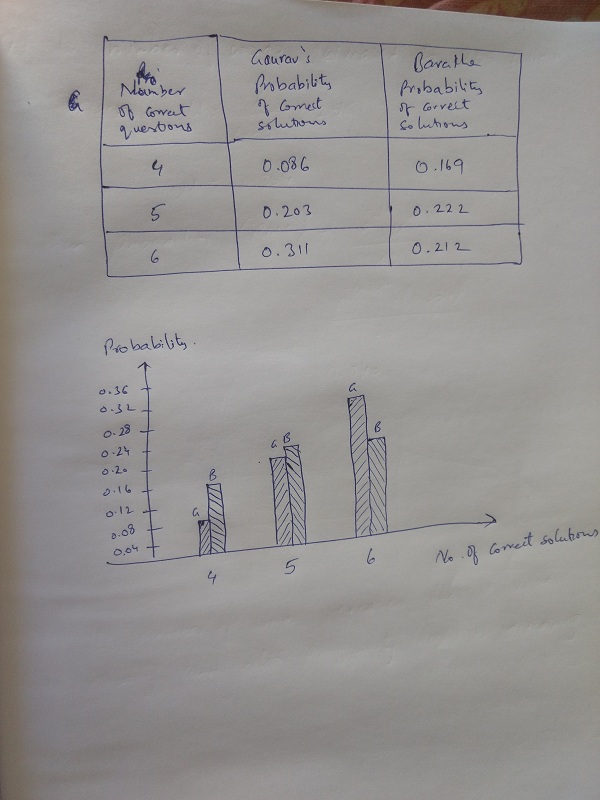 Number
of correct
questions
Gourav's
Probability
of correct
solutions
Barathe
Probability
of correct
solutions
4
0.086
0.169
5
0.203
0.222
6
0.311
0.212
Probability.
0.36
0.32
0.28
0.24
0.20
0.16
0.12
0.08
0.04
G
B
G B
G
B
4
5
6
No. of correct solutions